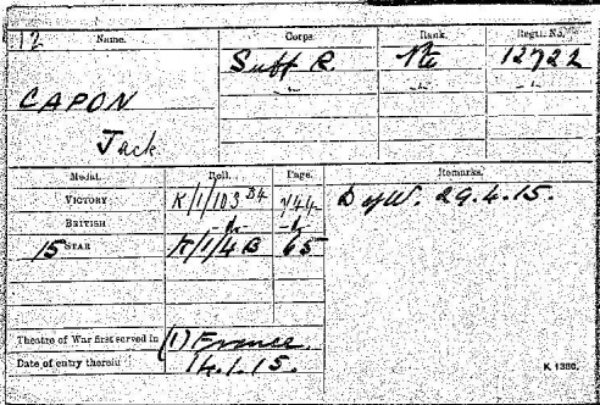 12 Name. Corps. Rank. Regtl. No.
CAPON Suff R. Pte 12722
Jack -"- -"- -"-
Medal. Roll. Page. Remarks.
VICTORY K/1/103 B4 744 D of W. 29.4.15.
BRITISH -do- -do-
15 STAR K/1/4 B 65
Theatre of War first served in (1) France.
Date of entry therein 14.1.15.
K 1380.